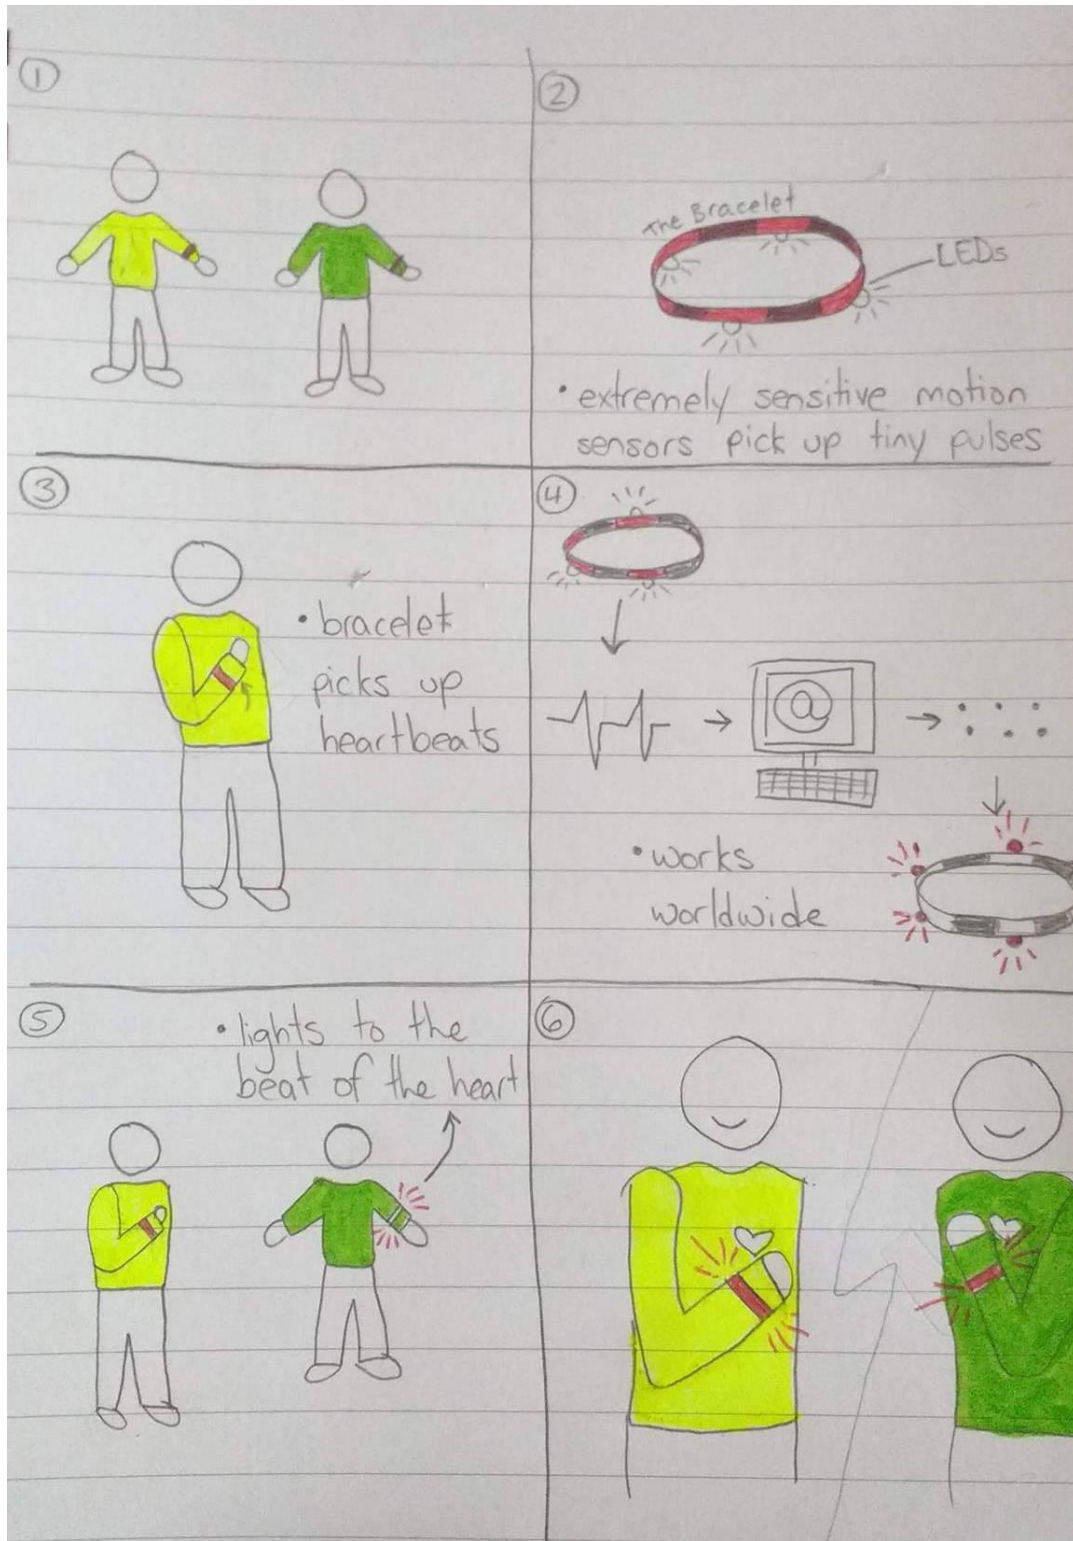 ①
②
The Bracelet
LEDs
• extremely sensitive motion
sensors pick up tiny pulses
③
• bracelet
picks up
heartbeats
④
@
• works
worldwide
⑤
• lights to the
beat of the heart
⑥